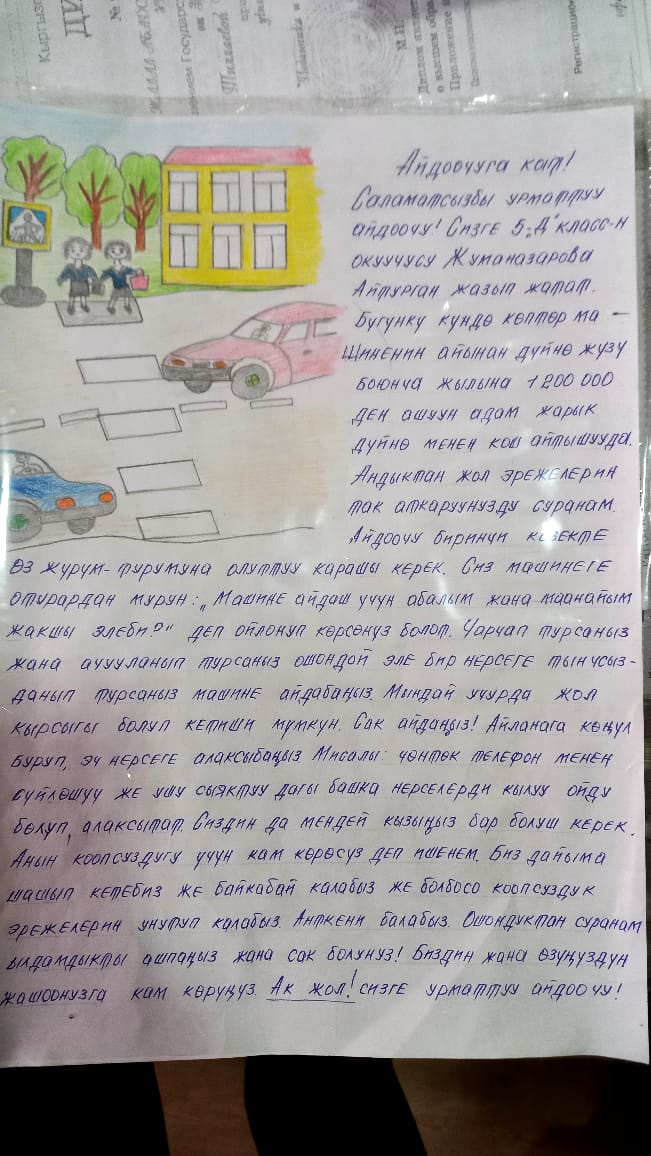 Кыргыз
ДИ
№
М.П.
Регистрацион
Айдоочуга кат!
Саламатсызбы урматтуу
айдоочу! Сизге 5-„Д" класс-н
окуучусу Жуманазарова
Айтурган жазып жатат.
Бугунку кундө көптөр ма -
шиненин айынан дүйнө жүзү
боюнча жылына 1 200 000
ден ашуун адам жарык
дүйнө менен кош айтышууда.
Андыктан жол эрежелерин
так аткаруунузду суранам.
Айдоочу биринчи кезекте
Өз журум-турумуна олуттуу карашы керек. Сиз машинеге
отурардан мурун: „Машине айдаш үчүн абалым жана маанайым
жакшы элеби?" деп ойлонуп көрсөнүз болот. Чарчап турсаныз
жана ачууланып турсаныз ошондой эле бир нерсеге тынчсыз-
данып турсаныз машине айдабаңыз. Мындай учурда жол
кырсыгы болуп кетиши мумкун. Сак айдаңыз! Айланага көңүл
буруп, эч нерсеге алаксыбаңыз Мисалы: чөнтөк телефон менен
сүйлөшүү же ушу сыяктуу дагы башка нерселерди кылуу ойду
бөлуп, алаксытат. Сиздин да мендей кызыңыз бар болуш керек.
Анын коопсуздугу учун кам көрөсүз деп ишенем. Биз дайыма
шашып кетебиз же байкабай калабыз же болбосо коопсуздук
эрежелерин унутуп калабыз. Анткени балабыз. Ошондуктан суранам
ылдамдыкты ашпаңыз жана сак болунуз! Биздин жана өзүңүздүн
жашоонузга кам көруңуз. Ак жол! сизге урматтуу айдоочу!